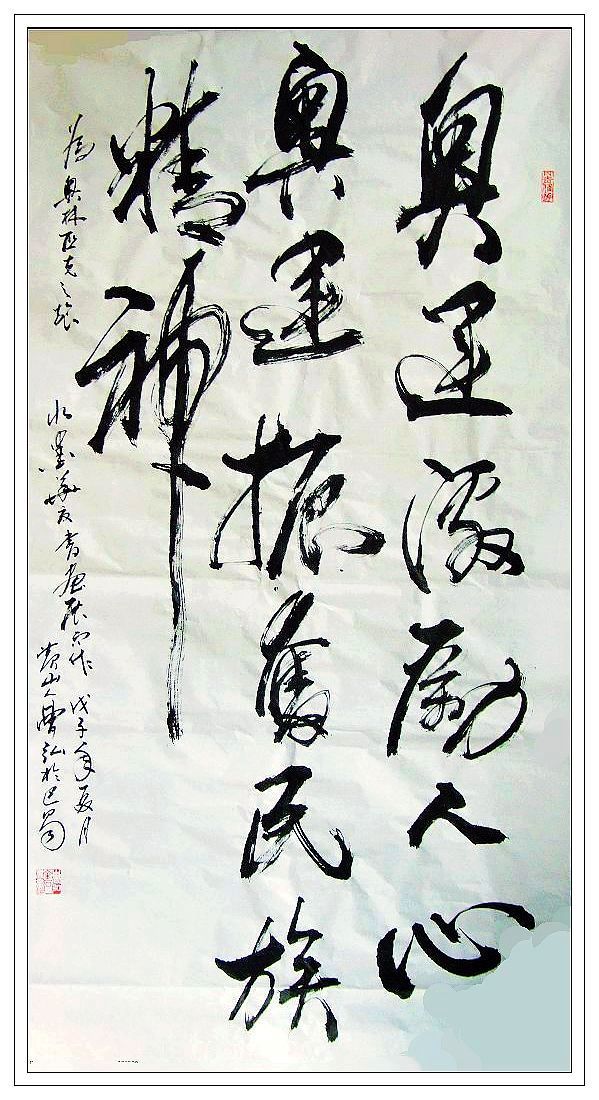 奥运激励人心
奥运振奮民族
精神
為奥林匹克之旅
水墨緣友書画展而作 戊子年夏月
山人曹弘於巴蜀